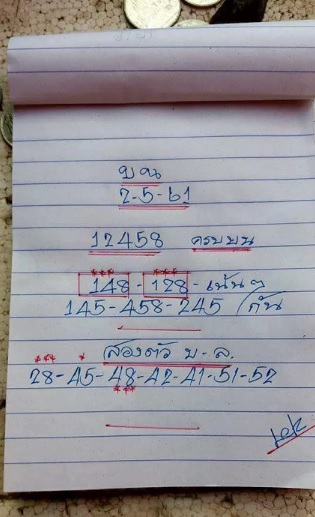 บน
2-5-61
12458 ครบบน
148 - 128 - เน้นๆ
145-458-245 /กัน
สองตัว บ-ล.
28-45-48-42-41-51-52